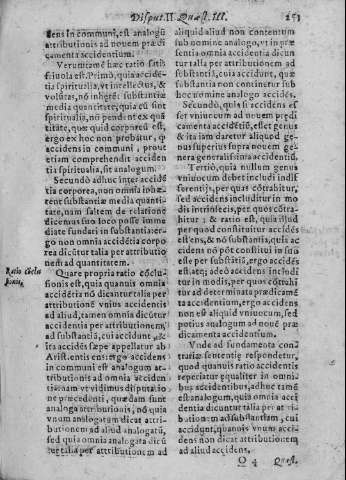 Disput. II. Quæst. III.
dens in communi, est analogū
attributionis ad nouem prædi
camenta accidentium.
Verumtamē hæc ratio satis
friuola est. Primò, quia acciden-
tia spiritualia, vt intellectus, &
volūtas, nō inhęrēt substantiæ
media quantitate, quia cū sint
spiritualia, nō pendent ex quā
titate, quæ quid corporeū est,
ergo ex hoc non probatur, ꝙ
accidens in communi, prout
etiam comprehendit acciden
tia spiritualia, sit analogum.
Secundò adhuc inter accidē
tia corporea, non omnia inhæ-
rent substantiæ media quanti
tate, nam saltem de relatione
dicemus suo loco posse imme
diate fundari in substantia: er-
go non omnia accidētia corpo
rea dicūtur talia per attributio
nem ad quantitatem.
Ratio cōclus
sionis.
Quare propria ratio cōclu-
sionis est, quia quanuis omnia
accidētia nō dicantur talia per
attributionē vnius accidentis
ad aliud, tamen omnia dicūtur
accidentia per attributionem,
ad substantiā, cui accidunt, &
ita accidēs sæpe appellatur ab
Arist. entis ens: ergo accidens
in communi est analogum at-
tributionis ad omnia acciden
tia: nam vt vidimus disputatio
ne præcedenti, quædam sunt
analoga attributionis, nō quia
vnum analogatum dicat attri-
butionem ad aliud analogatū,
sed quia omnia analogata dicū
tur talia per attributionem ad
aliquid aliud non contentum
sub nomine analogo, vt in præ
sentia omnia accidentia dicun
tur talia per attributionem ad
substantiā, cui accidunt, quæ
tamen non continetur sub
hoc nomine analogo accidēs.
Secundò, quia si accidens es
set vniuocum ad nouem prędi
camenta accidentiū, esset genus
& ita iam daretur aliquod ge-
nus superius supra nouem ge-
nera generalissima accidentiū.
Tertiò, quia nullum genus
vniuocum debet includi indif
ferentijs, per quas cōtrahitur,
sed accidens includitur in mo
dis intrinsecis, per quos cōtra-
hitur; & ratio est, quia illud
per quod constituitur accidēs
est ens, & nō substantia, quia ac
cidens nō pōt constitui in suo
esse per substātiā, ergo accidēs
est: atq; adeò accidens includi
tur in modis, per quos cōtrahi
tur ad determinata prædicamē
ta accidentium, ergo accidens
non est aliquid vniuocum, sed
potius analogum ad nouē præ
dicamenta accidentium.
Vnde ad fundamenta con-
trariæ sententię respondetur,
quod quanuis ratio accidentis
reperiatur equaliter in omni
bus accidentibus, adhuc tamē
est analogum, quia omnia acci
dentia dicuntur talia per at-
tributionem ad substantiam, cui
accidunt, quanuis vnum acci-
dens non dicat attributionem
ad aliud accidens.
Q 4 Quæst.